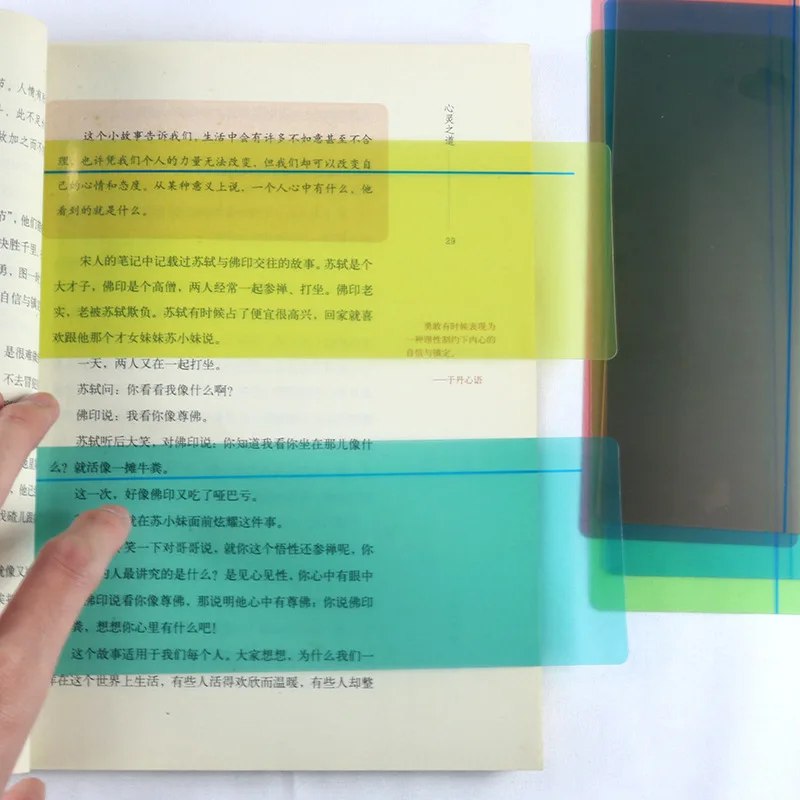 节。人情有
此不足
故加之而不
节”，他们
决胜千里
勇，图一时
自信与镇定
是很难
不去冒犯
心灵之道
29
这个小故事告诉我们，生活中会有许多不如意甚至不合
理，也许凭我们个人的力量无法改变，但我们却可以改变自
己的心情和态度。从某种意义上说，一个人心中有什么，他
看到的就是什么。
宋人的笔记中记载过苏轼与佛印交往的故事。苏轼是个
大才子，佛印是个高僧，两人经常一起参禅、打坐。佛印老
实，老被苏轼欺负。苏轼有时候占了便宜很高兴，回家就喜
欢跟他那个才女妹妹苏小妹说。
一天，两人又在一起打坐。
苏轼问：你看看我像什么啊？
佛印说：我看你像尊佛。
苏轼听后大笑，对佛印说：你知道我看你坐在那儿像什
么？就活像一摊牛粪。
这一次，好像佛印又吃了哑巴亏。
在苏小妹面前炫耀这件事。
笑一下对哥哥说，就你这个悟性还参禅呢，你
的人最讲究的是什么？是见心见性，你心中有眼中
佛印说看你像尊佛，那说明他心中有尊佛；你说佛印
粪，想想你心里有什么吧！
这个故事适用于我们每个人。大家想想，为什么我们一
在这个世界上生活，有些人活得欢欣而温暖，有些人却整
勇敢有时候表现为
一种理性制约下内心的
自信与镇定。
——于丹心语